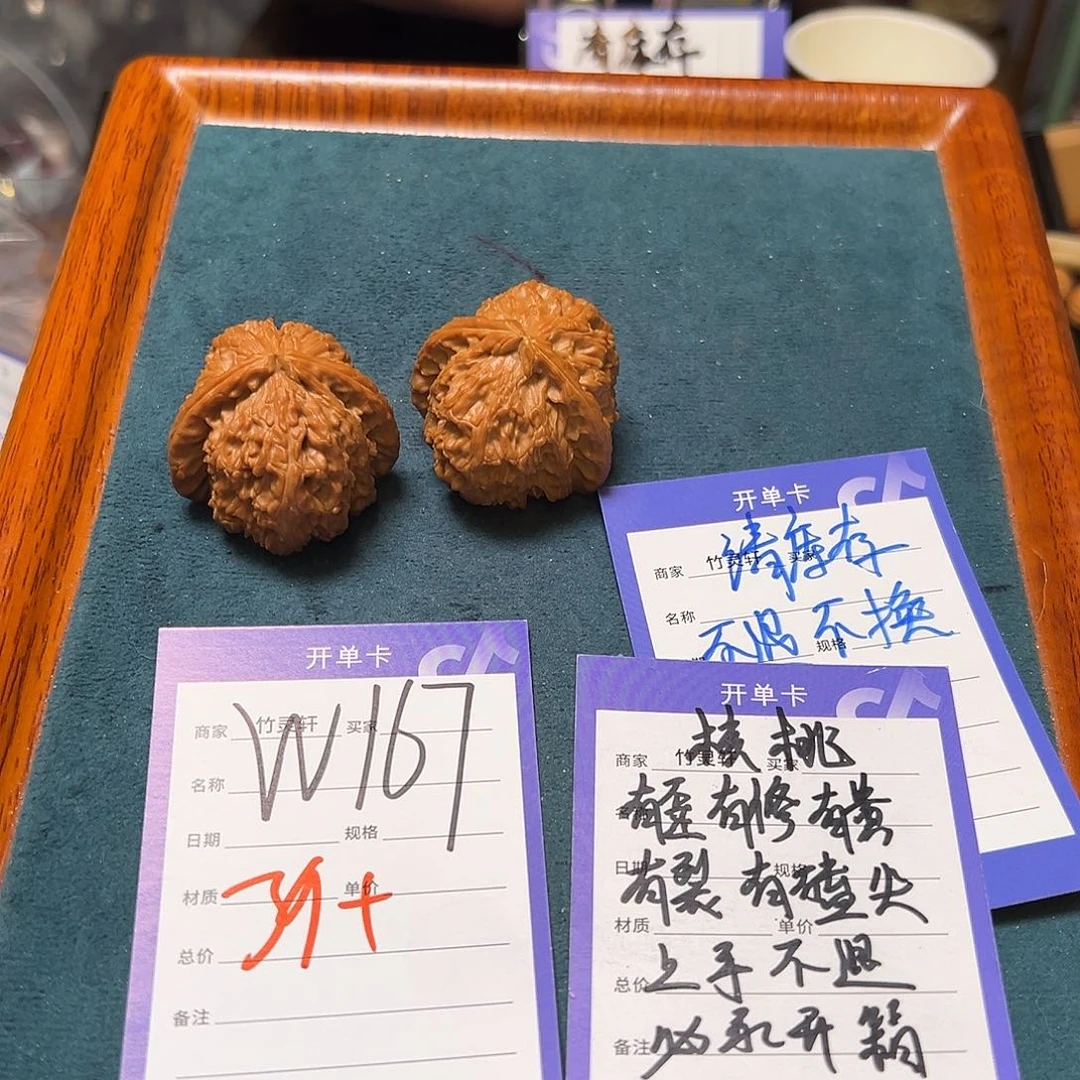 清库存
开单卡
清库存
商家 竹灵轩 买家
名称
不退不换
规格
开单卡
W167
商家 竹灵轩 买家
名称
日期 规格
材质 单价
总价
备注
开单卡
核桃
商家 竹灵轩 买家
有歪有修有黄
日期 规格
有裂有磕尖
材质 单价
上手不退
总价
备注